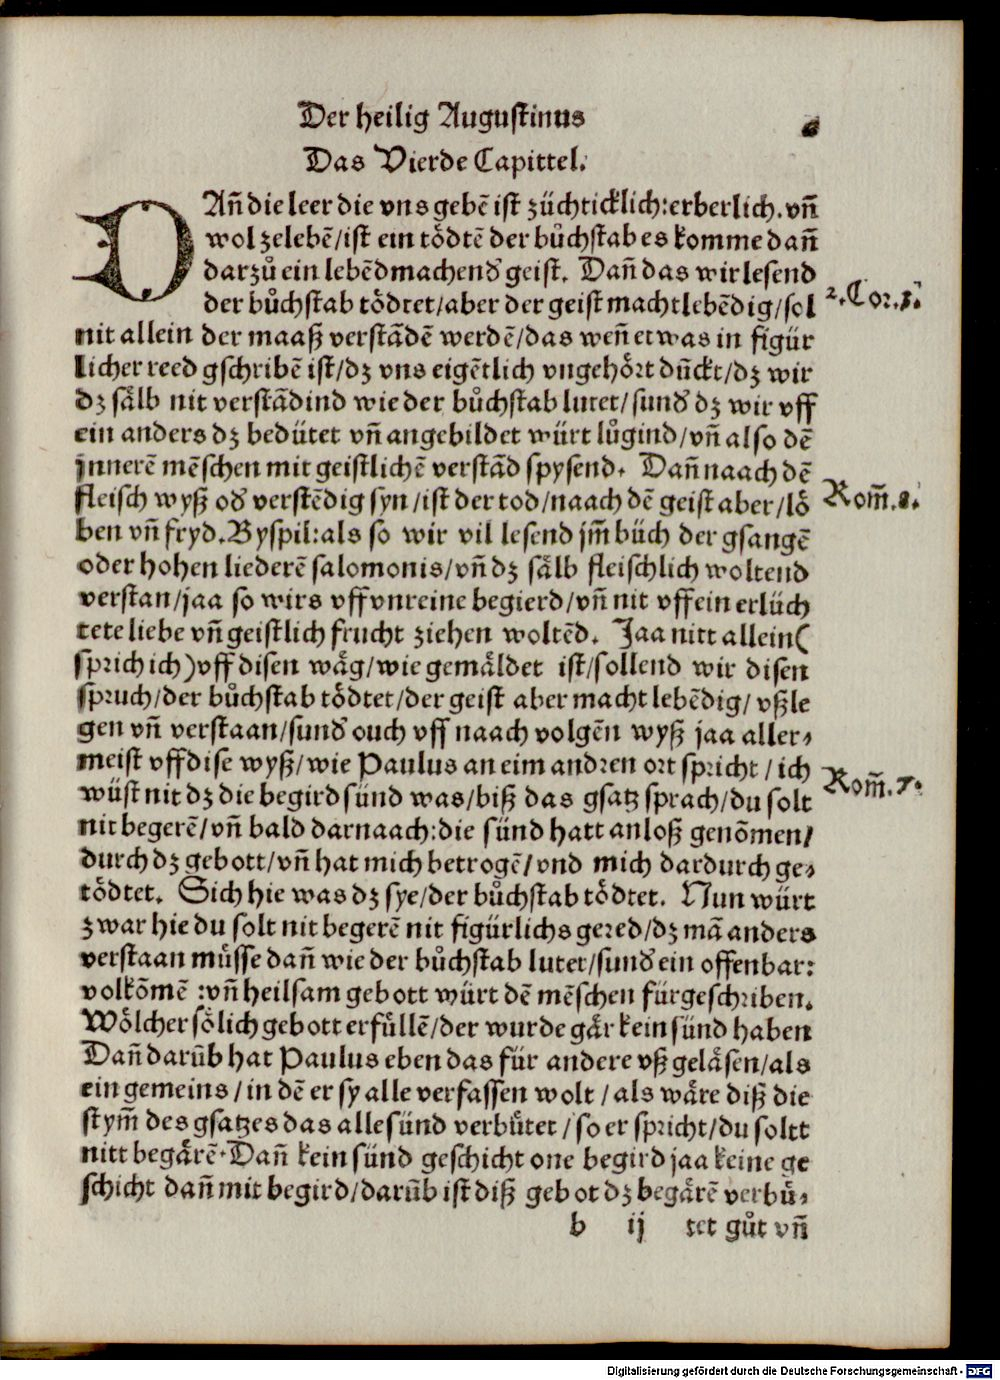 Der heilig Augustinus
Das Vierde Capittel.
DAn̄ die leer die vns gebē ist züchticklich: erberlich. vn̄
wol zelebē/ist ein tödtē der bůchstab es komme dan̄
darzů ein lebēdmachend geist. Dan̄ das wir lesend
der bůchstab tödtet/aber der geist macht lebēdig/sol
2. Cor. 3.
nit allein der maaß verstādē werdē/das wen̄ etwas in figür
licher reed gschribē ist/dz vns eigētlich vngehört dūckt/dz wir
dz sälb nit verstādind wie der bůchstab lutet/sund dz wir vff
ein anders dz bedütet vn̄ angebildet würt lůgind/vn̄ also dē
jnnerē mēschen mit geistlichē verstād spysend. Dan̄ naach dē
fleisch wyß od verstēdig syn/ist der tod/naach dē geist aber/lö
Rom̄. 8.
ben vn̄ fryd. Byspil: als so wir vil lesend jm̄ büch der gsangē
oder hohen liederē salomonis/vn̄ dz sälb fleischlich woltend
verstan/jaa so wirs vff vnreine begierd/vn̄ nit vff ein erlüch
tete liebe vn̄ geistlich frucht ziehen woltēd. Jaa nitt allein(
sprich ich)vff disen wäg/wie gemäldet ist/sollend wir disen
spruch/der bůchstab tödtet/der geist aber macht lebēdig/vßle
gen vn̄ verstaan/sund ouch vff naach volgēn wyß jaa aller⸗
meist vff dise wyß/wie Paulus an eim andren ort spricht/ich
wüst nit dz die begird sünd was/biß das gsatz sprach/du solt
Rom̄. 7.
nit begerē/vn̄ bald darnaach: die sünd hatt anloß genōmen/
durch dz gebott/vn̄ hat mich betrogē/vnd mich dardurch ge⸗
tödtet. Sich hie was dz sye/der bůchstab tödtet. Nun würt
zwar hie du solt nit begerē nit figürlichs gered/dz mā anders
verstaan müsse dan̄ wie der bůchstab lutet/sund ein offenbar:
volkōmē : vn̄ heilsam gebott würt dē mēschen fürgeschriben.
Wölcher sölich gebott erfüllē/der wurde gär kein sünd haben
Dan̄ darūb hat Paulus eben das für andere vß geläsen/als
ein gemeins/in dē er sy alle verfassen wolt/als wäre diß die
stym̄ des gsatzes das alle sünd verbütet/so er spricht/du soltt
nitt begärē. Dan̄ kein sünd geschicht one begird jaa keine ge
schicht dan̄ mit begird/darūb ist diß gebot dz begärē verbü⸗
b ij tet gůt vn̄
Digitalisierung gefördert durch die Deutsche Forschungsgemeinschaft - DFG